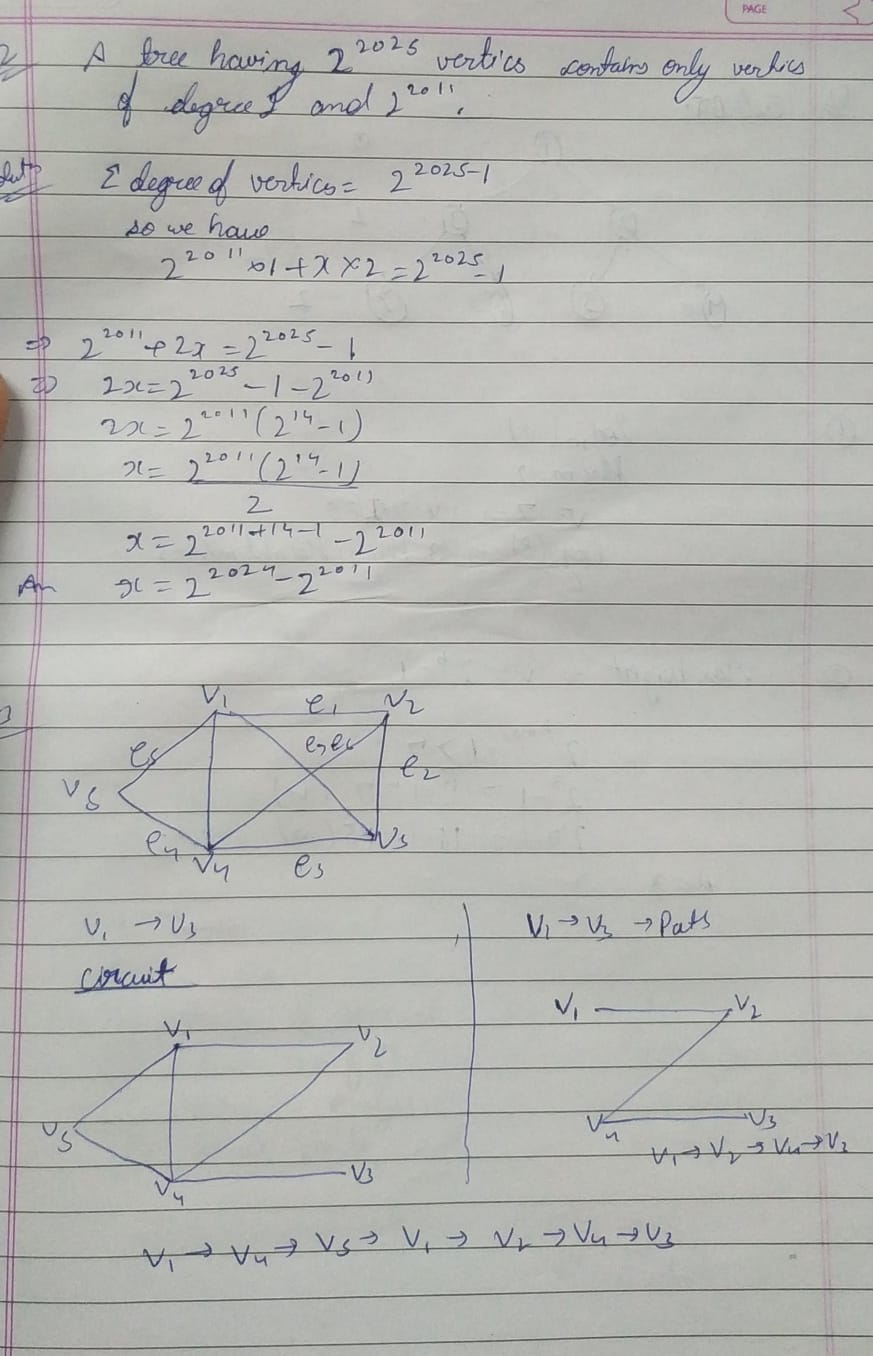 PAGE
2
A tree having 2^2025 vertics contains only vertics
of degree 1 and 2^2011.
Σ degree of vertics = 2^2025-1
so we have
2^2011 × 1 + x × 2 = 2^2025 - 1
⇒ 2^2011 + 2x = 2^2025 - 1
⇒ 2x = 2^2025 - 1 - 2^2011
2x = 2^2011 (2^14 - 1)
x = 2^2011 (2^14 - 1)
2
x = 2^2011+14-1 - 2^2011
An x = 2^2024 - 2^2011
V1 e1 V2
e5 e7 e6
V5 e2
e4 V4 e3 V3
V1 → V3
V1 → V3 → Path
Circuit
V1 V2
V1 V2
V5
V4 V3
V4 V3
V1 → V2 → V4 → V3
V1 → V4 → V5 → V1 → V2 → V4 → V3